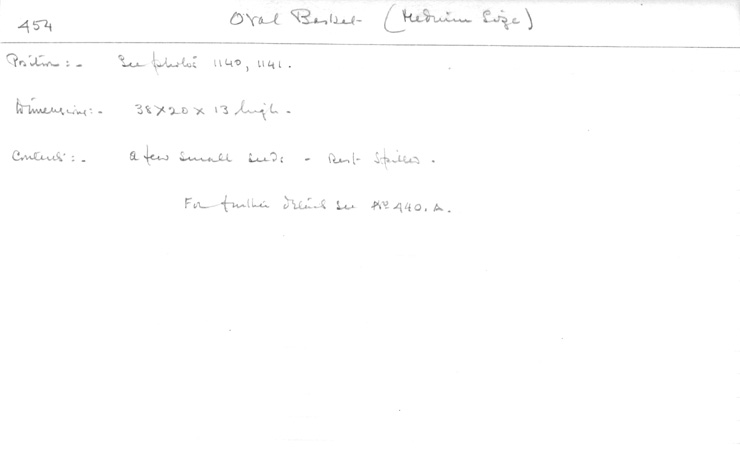 454 Oval Basket (Medium Size)
Position:- See photos 1140, 1141.
Dimensions:- 38 x 20 x 13 high.
Contents:- A few small seeds - Rest spilled.
For further details see No 440.A.